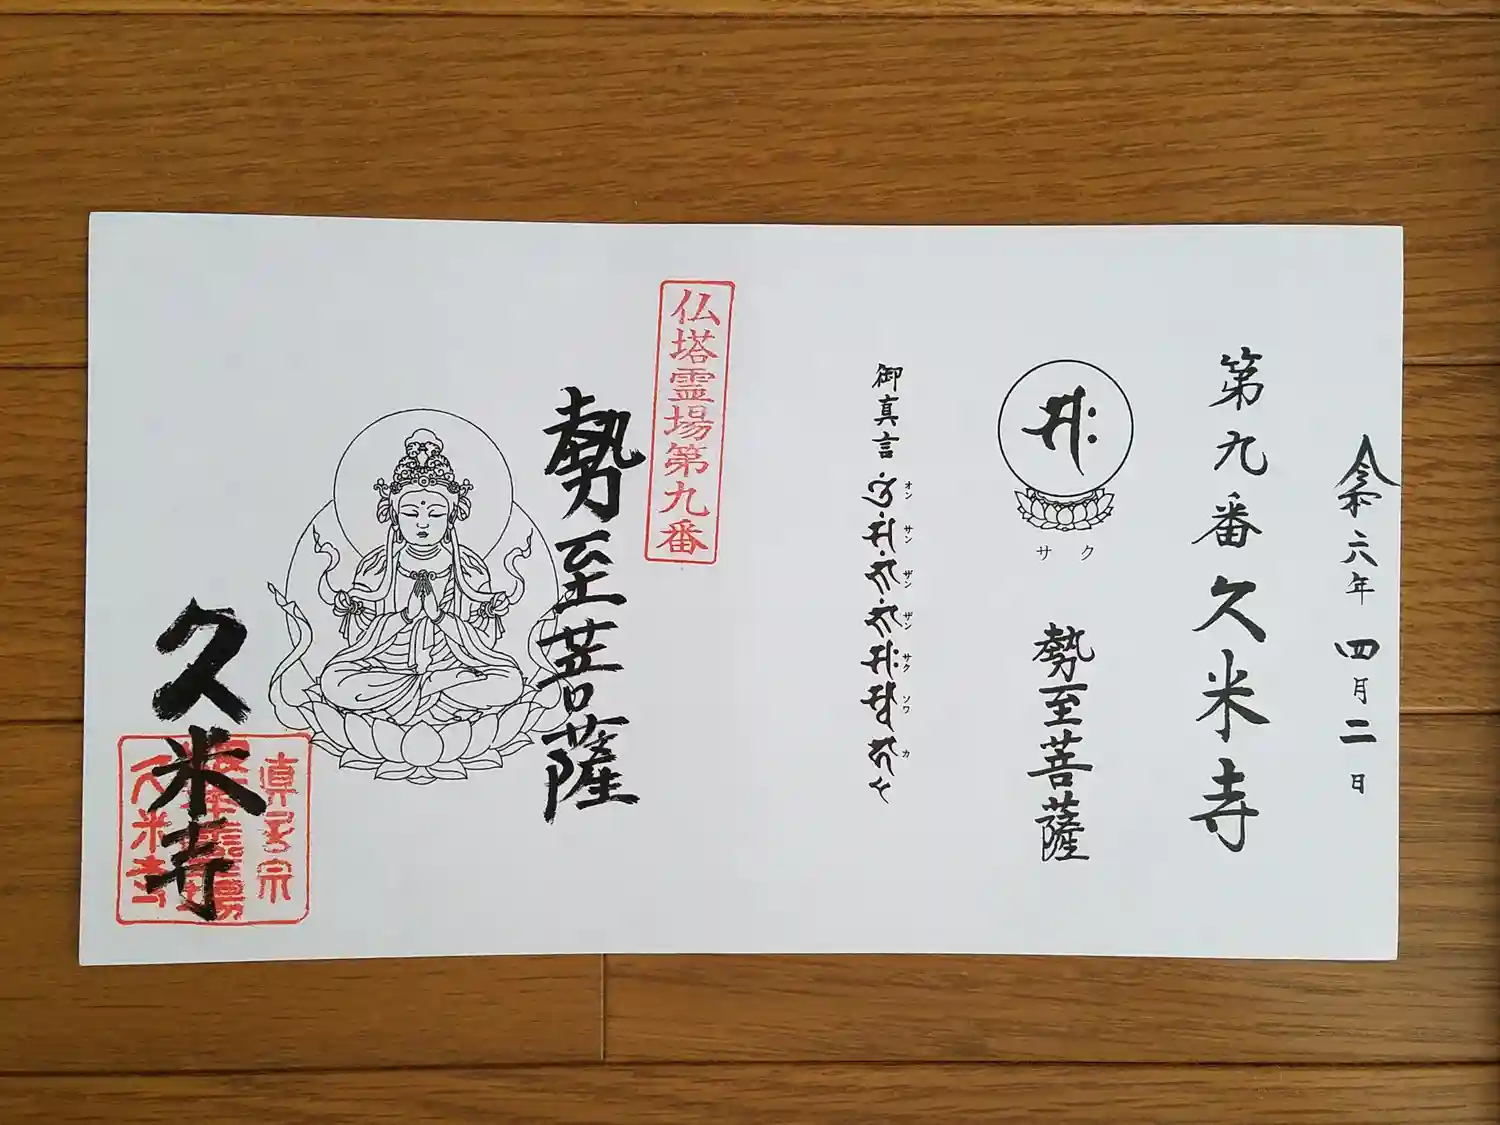 令和六年 四月二日
第九番 久米寺
サク
勢至菩薩
御真言
オン サン ザン ザン サク ソワ カ
仏塔霊場第九番
勢至菩薩
久米寺
真言宗
久米寺